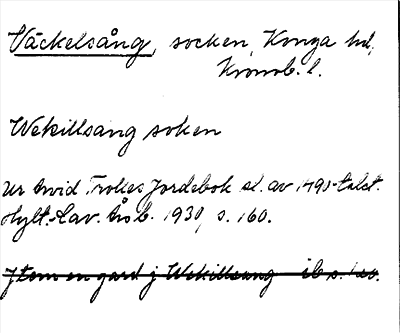 Väckelsång, socken, Konga hd,
Kronob. l.
Wekillsang soken
Ur Arvid Trolles Jordebok sl. av 1490-talet.
Hylt.-Cav. årsb. 1930, s. 160.
Jtem en gard j Wekillsang ib s. 160.